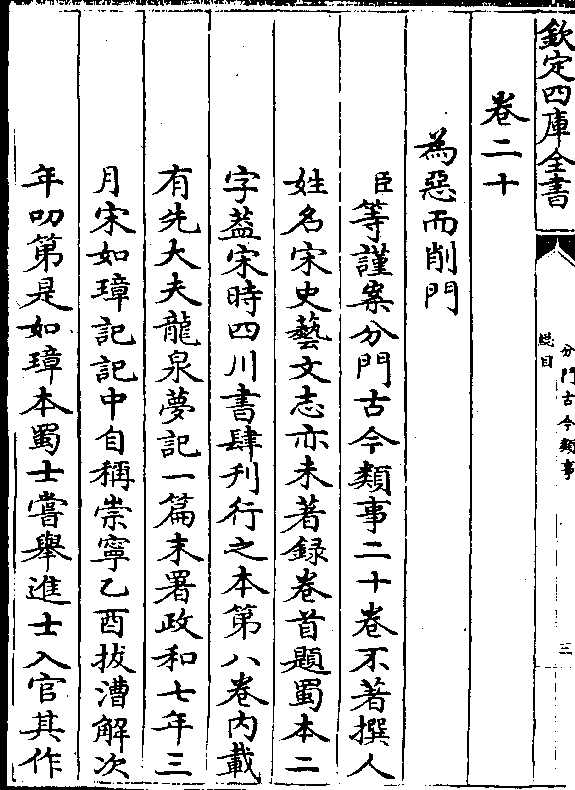 欽定四庫全書
分門古今類事
總目
三
卷二十
為惡而削門
臣等謹案分門古今類事二十卷不著撰人
姓名宋史藝文志亦未著録卷首題蜀本二
字葢宋時四川書肆刋行之本第八卷内載
有先大夫龍泉夢記一篇末署政和七年三
月宋如璋記記中自稱崇寧乙酉拔漕解次
年叨第是如璋本蜀士嘗舉進士入官其作